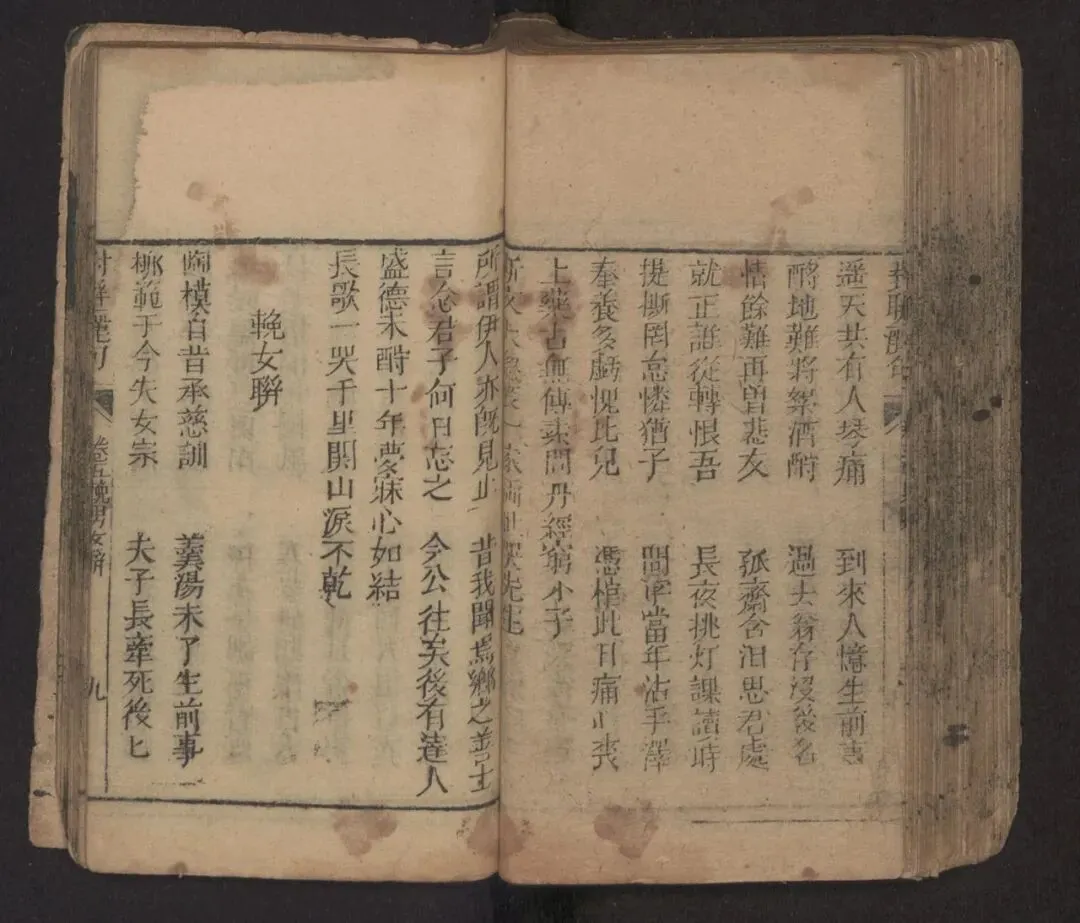 遥天共有人琴痛 到來人憶生前事
酹地難將絮酒酌 過去翁存沒後名
悟餘難再曾悲友 孤齋含泪思君處
就正誰從轉恨吾 長夜挑灯課讀時
提撕罔怠憐猶子 當年沾手澤
奉養多虧愧比兒 憑棺此日痛
上藥古無傳素問丹經窮小子
所謂伊人亦既見止 昔我聞焉鄉之善士
言念君子何日忘之 今公往矣後有達人
盛德未酧十年夢寐心如結
長歌一哭千里関山淚不乾
輓女聨
閫模自昔承慈訓 羹湯未了生前事
梱範于今失女宗 夫子長牽死後
卷五輓男女聨
九